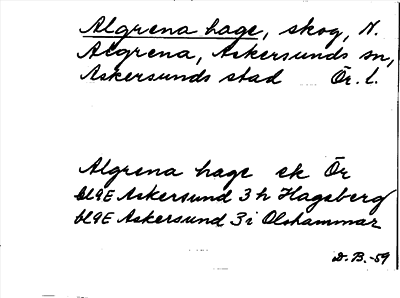 Algrena hage, skog, N.
Algrena, Askersunds sn,
Askersunds stad Ör. l.
Algrena hage sk Ör
bl9E Askersund 3 h Hagaberg
bl9E Askersund 3 i Olshammar
D. B. -59